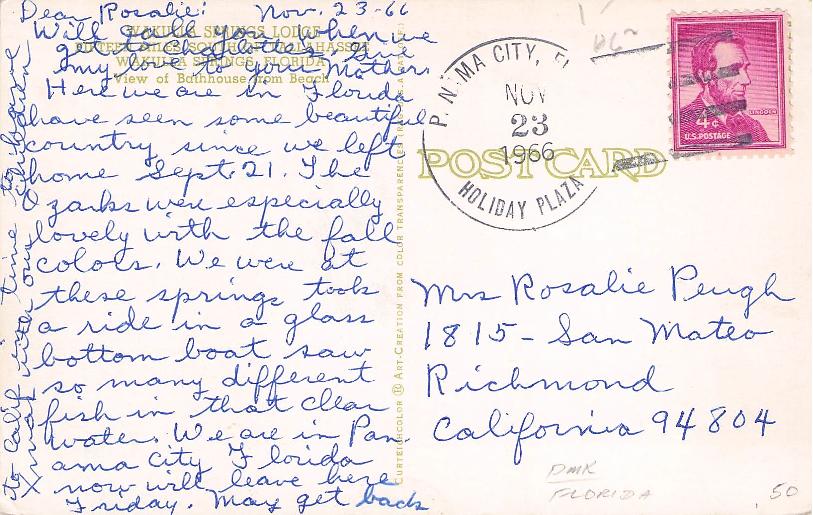 Dear Rosalie: Nov. 23-66
Will call you when we
get to
my love to your Mother.
Here we are in Florida
have seen some beautiful
country since we left
home Sept. 21. The
Ozarks were especially
lovely with the fall
colors. We were at
these springs took
a ride in a glass
bottom boat saw
so many different
fish in that clear
water. We are in Pan
ama City Florida
now will leave here
Friday. May get back
to Calif in time to have
Xmas with our children
WAKULLA SPRINGS LODGE
FIFTEEN MILES SOUTH OF TALLAHASSEE
WAKULLA SPRINGS, FLORIDA
View of Bathhouse from Beach
CURTEICHCOLOR ® ART-CREATION FROM COLOR TRANSPARENCIES
POST CARD
P. N. MA CITY, FL
NOV
23
1966
HOLIDAY PLAZA
LINCOLN
4¢
U.S. POSTAGE
Mrs Rosalie Peugh
1815- San Mateo
Richmond
California 94804
DMK
FLORIDA
.50